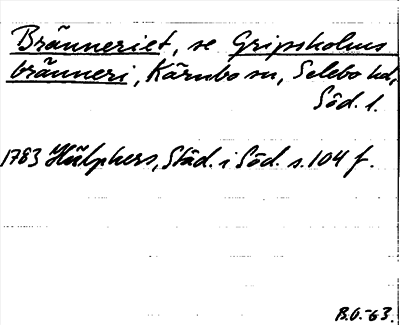 Bränneriet, se Gripsholms
bränneri, Kärnbo sn, Selebo hd,
Söd. l.
1783 Hülphers, Städ. i Söd. s. 104 f.
B.O.-63.